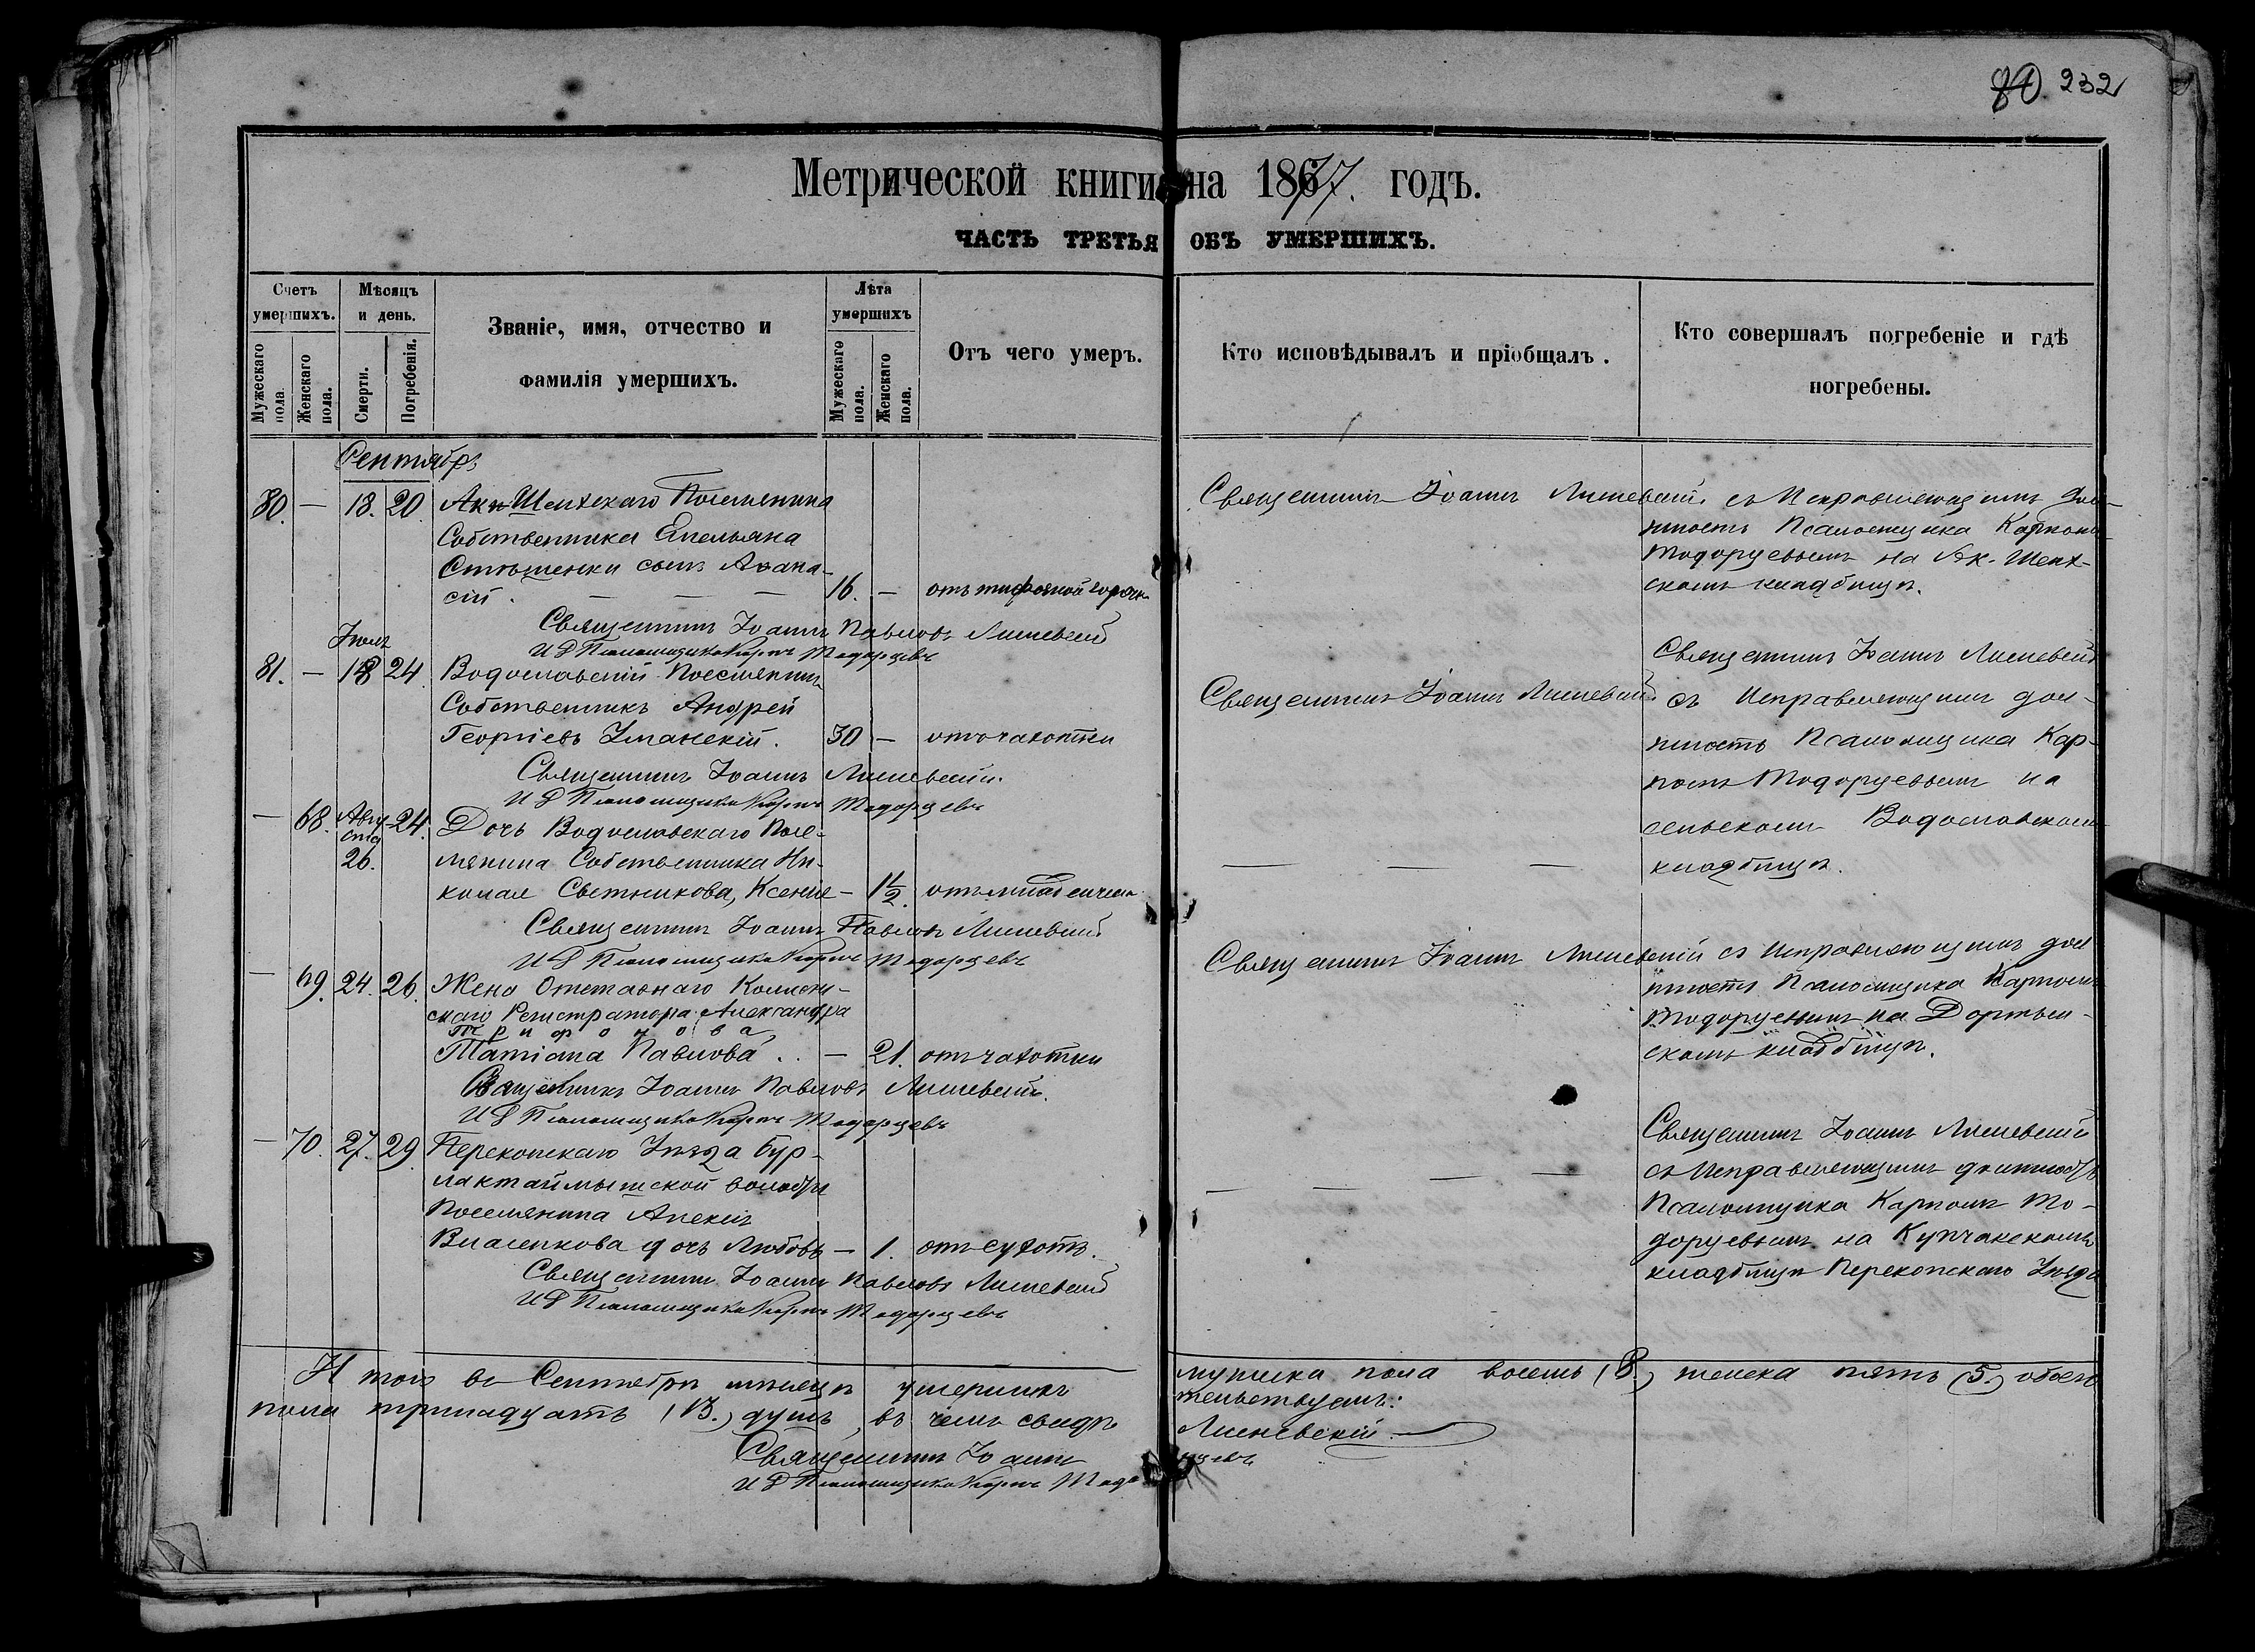 80 232
Метрической книги на 1877. годъ.
ЧАСТЬ ТРЕТЬЯ ОБЪ УМЕРШИХЪ.
Счетъ умершихъ.
Мужескаго пола.
Женскаго пола.
Мѣсяцъ и день.
Смерти.
Погребенія.
Званіе, имя, отчество и
фамилія умершихъ.
Лѣта умершихъ
Мужескаго пола.
Женскаго пола.
Отъ чего умеръ.
Кто исповѣдывалъ и пріобщалъ.
Кто совершалъ погребеніе и гдѣ
погребены.
Сентябрь
80. — 18. 20. Акъ-Шеихскаго Поселянина
Собственника Емельяна
сынъ Афана-
сій. — — — 16. — отъ тифозной горячк.
Священникъ Іоаннъ Павловъ Лисневскій
И Д Псаломщика Карпъ Тодорцевъ
Священникъ Іоаннъ Лисневскій съ Исправляющимъ дол-
жность Псаломщика Карпомъ
Тодорцевымъ на Ак-Шеих-
скомъ кладбищѣ.
Іюль
81. — 18 24. Водославскій Поселянинъ
Собственникъ Андрей
Георгіевъ Уманскій. 30 — отъ чахотки
Священникъ Іоаннъ Лисневскій.
И Д Псаломщика Карпъ Тодорцевъ
Священникъ Іоаннъ Лисневскій
Священникъ Іоаннъ Лисневскій
съ Исправляющимъ дол-
жность Псаломщика Кар-
помъ Тодорцевымъ на
сельскомъ Водославскомъ
кладбищѣ.
— 68. Авгу-
ста
26. 24. Дочь Водославскаго Посе-
лянина Собственника Ни-
колая Светникова, Ксенія — 1½. отъ младенческ.
Священникъ Іоаннъ Павловъ Лисневскій
И Д Псаломщика Карпъ Тодорцевъ
— — —
— 69. 24. 26. Жена Отставнаго Коллеж-
скаго Регистратора Александра
Трифонова
Татіана Павлова .. — 21. отъ чахотки
Священникъ Іоаннъ Павловъ Лисневскій.
И Д Псаломщика Карпъ Тодорцевъ
Священникъ Іоаннъ Лисневскій съ Исправляющимъ дол
жность Псаломщика Карпомъ
Тодорцевымъ на
скомъ кладбищѣ.
— 70. 27. 29. Перекопскаго Уѣзда Бур-
лактаймышской волости
Поселянина Алексія
Власенкова дочь Любовь — 1. отъ сухотъ.
Священникъ Іоаннъ Павловъ Лисневскій
И Д Псаломщика Карпъ Тодорцевъ
— — — —
Священникъ Іоаннъ Лисневскій
съ Исправляющимъ должность
Псаломщика Карпомъ То-
дорцевымъ на Купчакскомъ
кладбищѣ Перекопскаго Уѣзда
И того въ Сентябрѣ мѣсяцѣ умершихъ мужеска пола восемь (8.) женска пять (5.) обоего
пола тринадцать (13.) душъ, въ чемъ свидѣтельствуемъ:
Священникъ Іоаннъ Лисневскій
И Д Псаломщика Карпъ Тодорцевъ